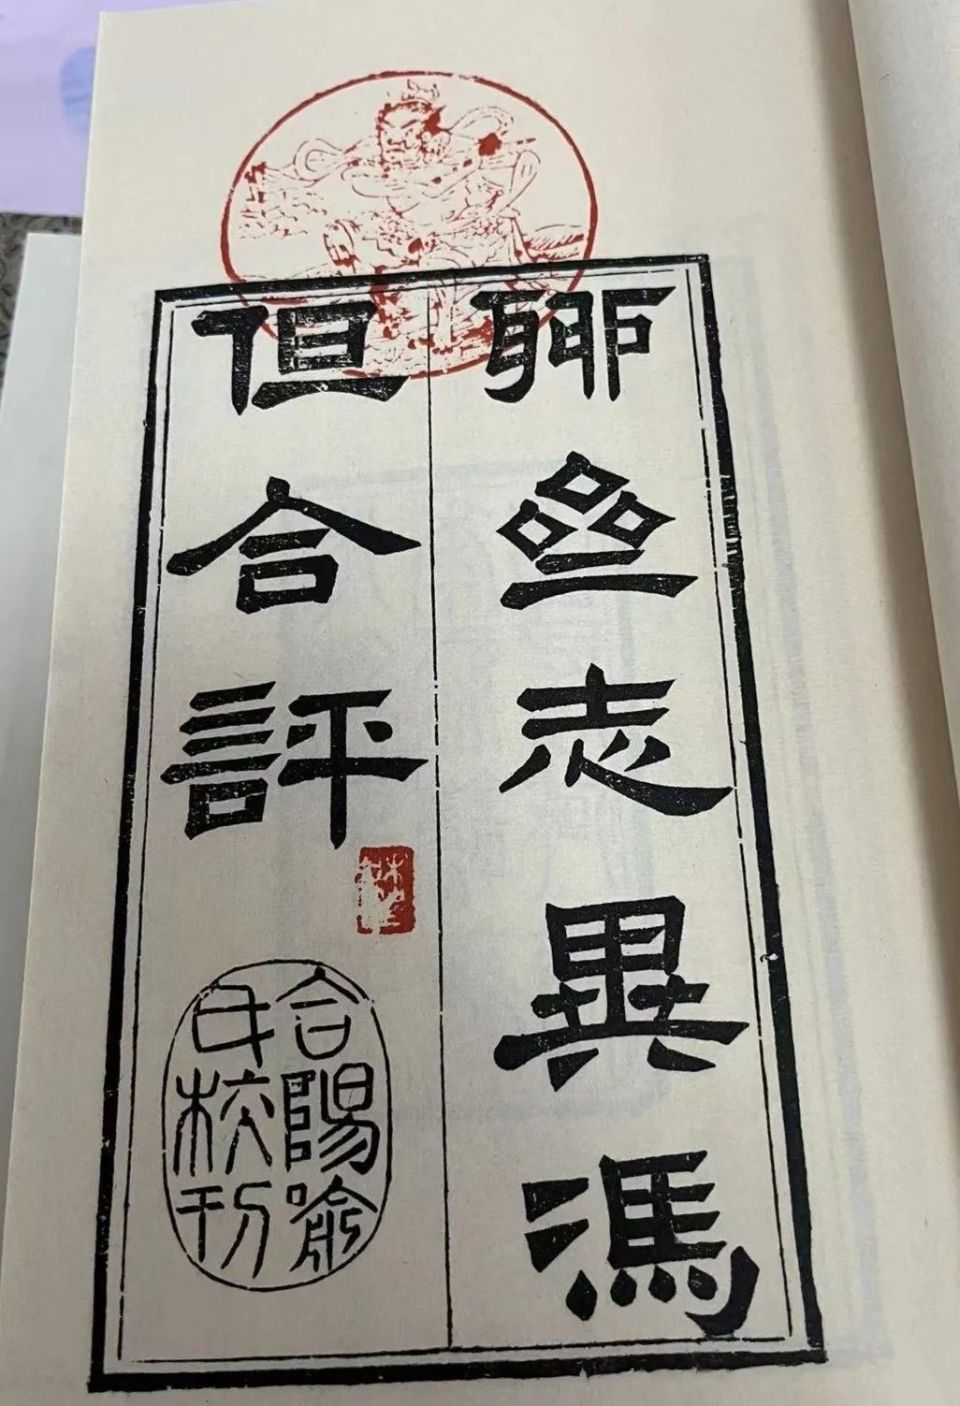 聊亝志異馮
但合評
合陽喻
氏校刊